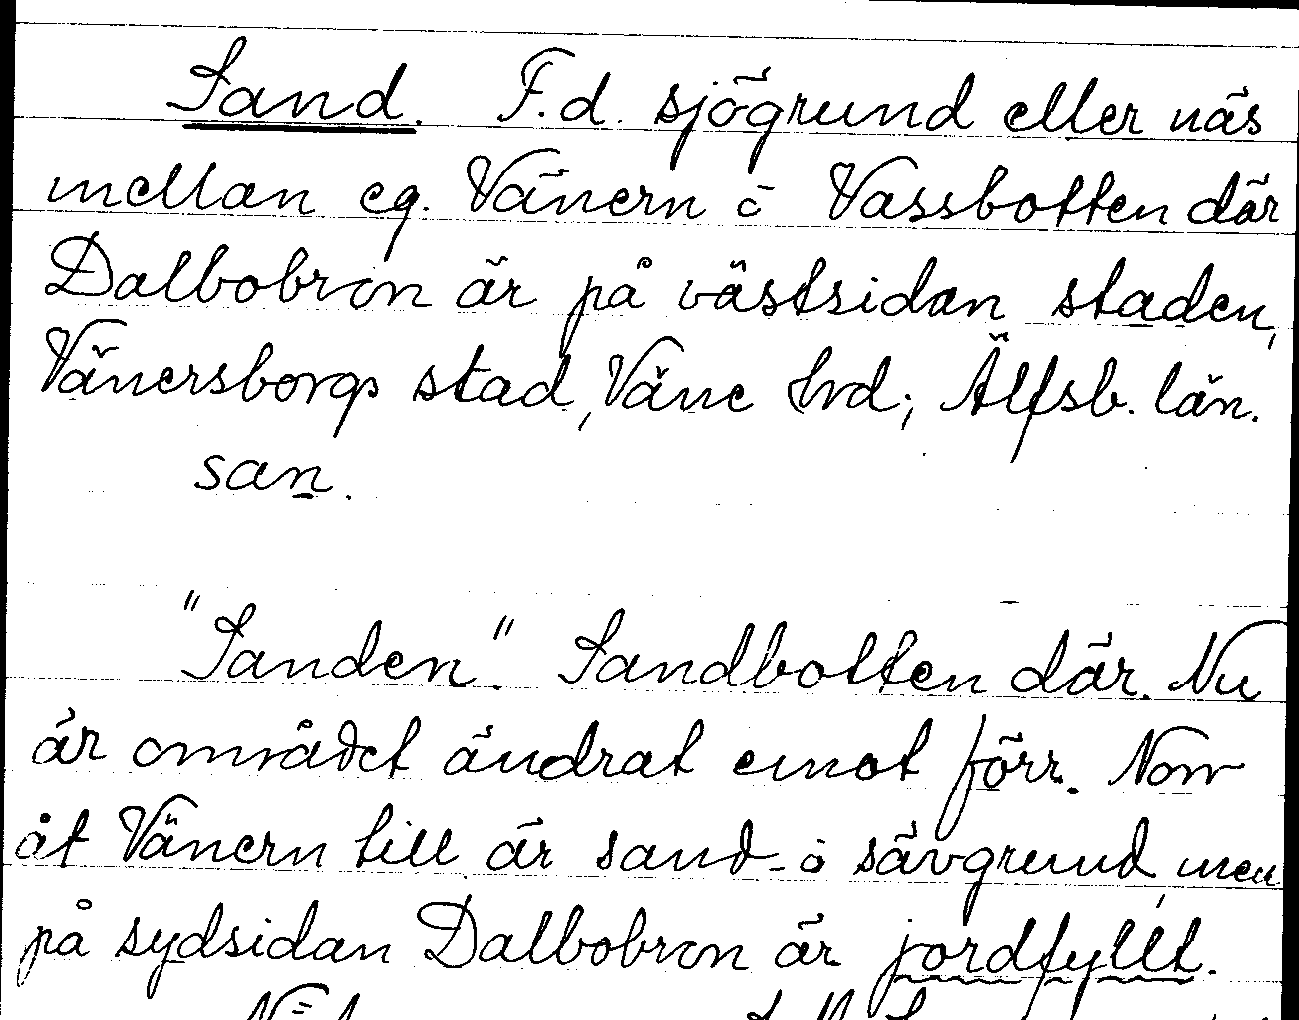 Sand. F.d. sjögrund eller näs
mellan eg. Vänern o Vassbotten där
Dalbobron är på västsidan staden,
Vänersborgs stad, Väne hrd; Älfsb. län.
san.
"Sanden". Sandbotten där. Nu
är området ändrat emot förr. Norr
åt Vänern till är sand- o sävgrund, men
på sydsidan Dalbobron är jordfyllt.